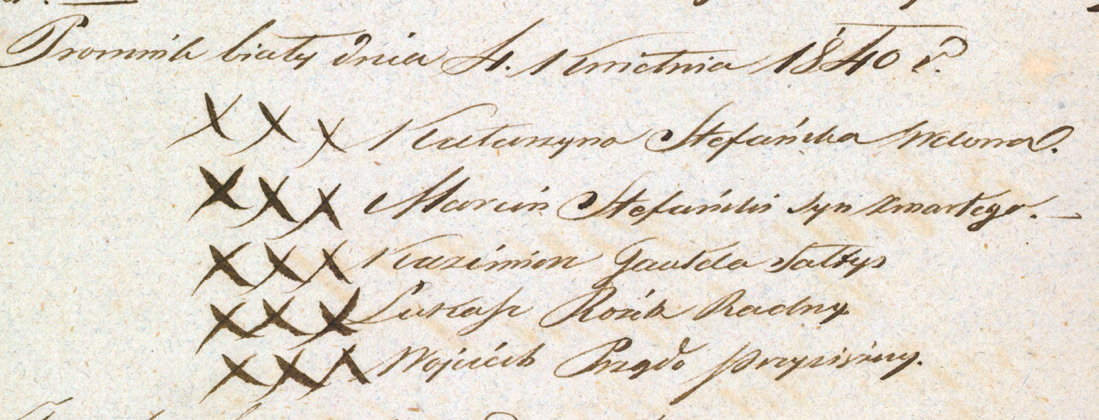 Promnik biały dnia 4. Kwietnia 1840 r.
XXX Katarzyna Stefańska Wdowa.
XXX Marcin Stefański syn zmarłego. —
XXX Kazimierz Gaulda Sałtys
XXX Łukasz Rózik Radny
XXX Wojciech przysiężny.